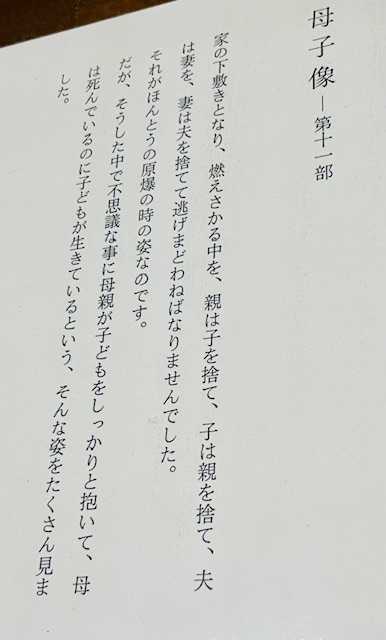 母子像―第十一部
家の下敷きとなり、燃えさかる中を、親は子を捨て、子は親を捨て、夫
は妻を、妻は夫を捨てて逃げまどわねばなりませんでした。
それがほんとうの原爆の時の姿なのです。
だが、そうした中で不思議な事に母親が子どもをしっかりと抱いて、母
は死んでいるのに子どもが生きているという、そんな姿をたくさん見ま
した。